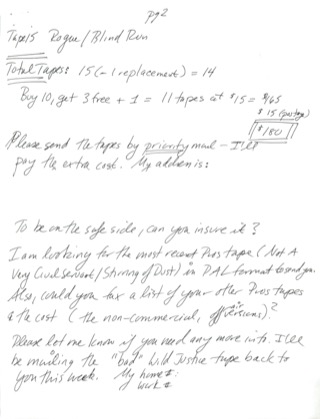 pg 2
Tape 15 Rogue / Blind Run
Total Tapes: 15 (- 1 replacement) = 14
Buy 10, get 3 free + 1 = 11 tapes at $15 = $165
$15 (postage)
$180
Please send the tapes by priority mail - I'll
pay the extra cost. My address is:
To be on the safe side, can you insure it?
I am looking for the most recent Pros tape (Not A
Very Civil Servant / Stirring of Dust) in PAL format to send you.
Also, could you fax a list of your other Pros tapes
& the cost (the non-commercial, air versions)?
Please let me know if you need any more info. I'll
be mailing the "bad" Wild Justice tape back to
you this week. My home #:
work #: